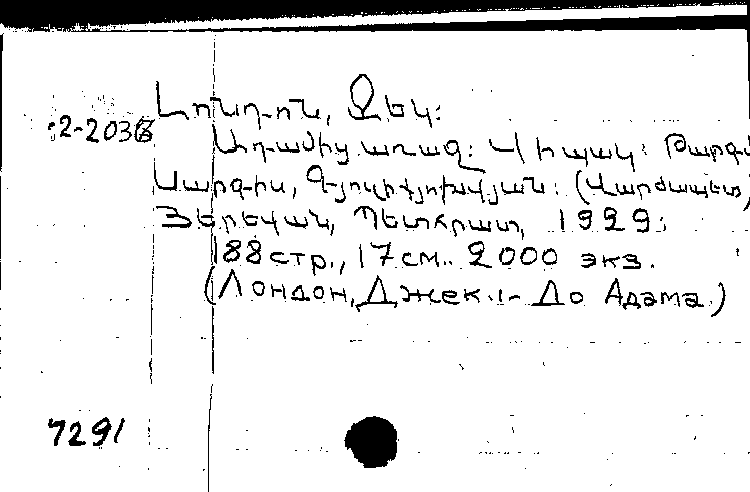 Լոնդոն, Ջեկ:
2-2036
Ադամից առաջ: Վիպակ: Թարգմ
Սարգիս,
Յերեվան, Պետհրատ, 1929:
188 стр., 17 см.. 2000 экз.
(Лондон, Джек.:- До Адама.)
7291